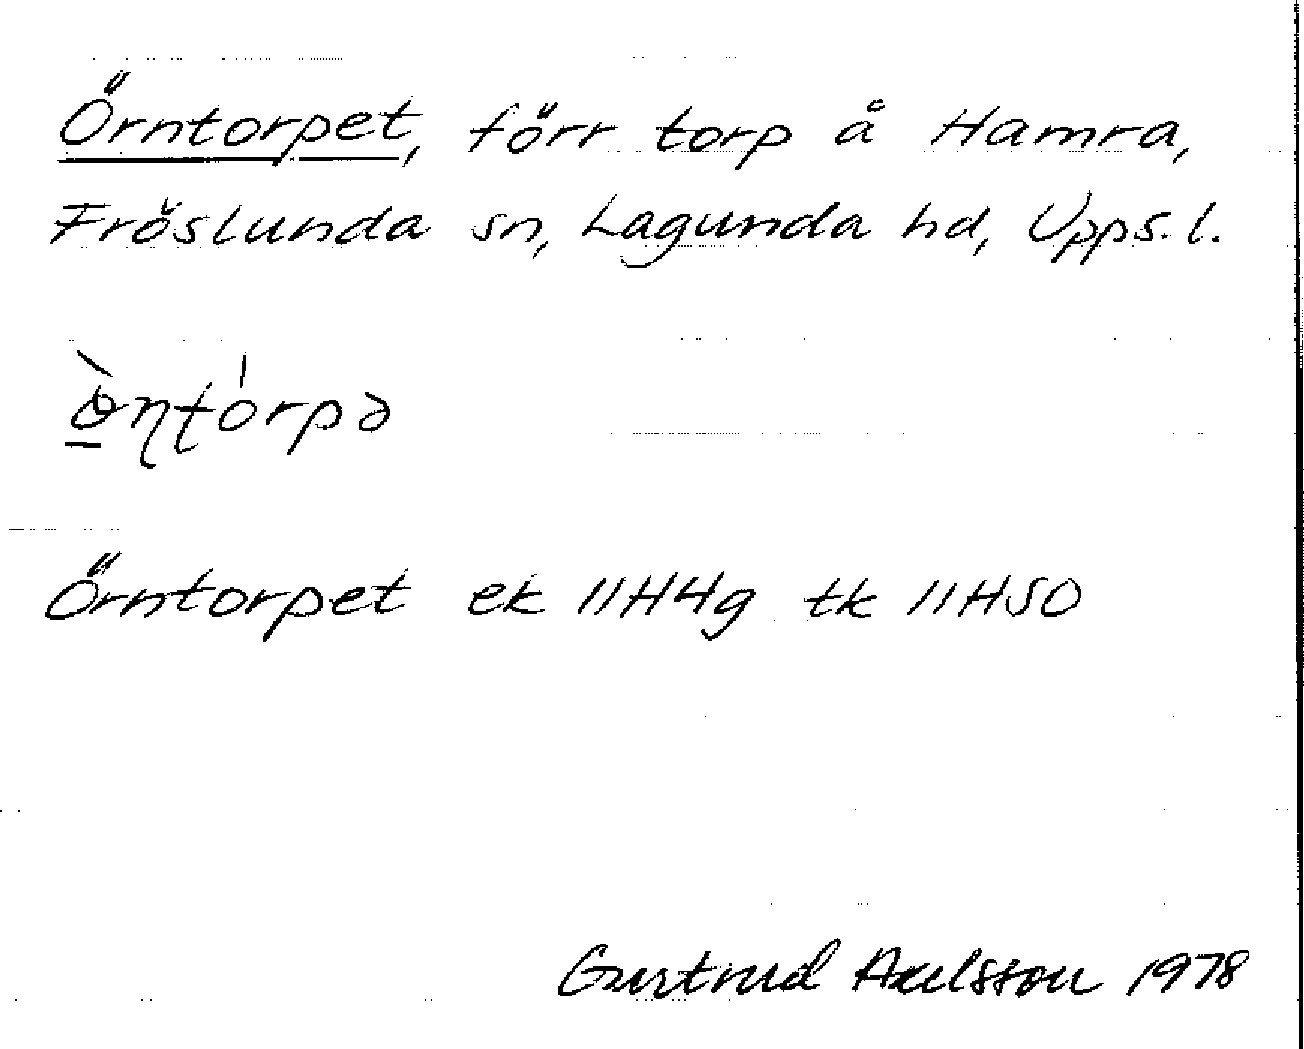 Örntorpet, förr torp å Hamra,
Fröslunda sn, Lagunda hd, Upps. l.
Örntorpet ek 11H4g tk 11HSO
Gurtrud Axelsson 1978